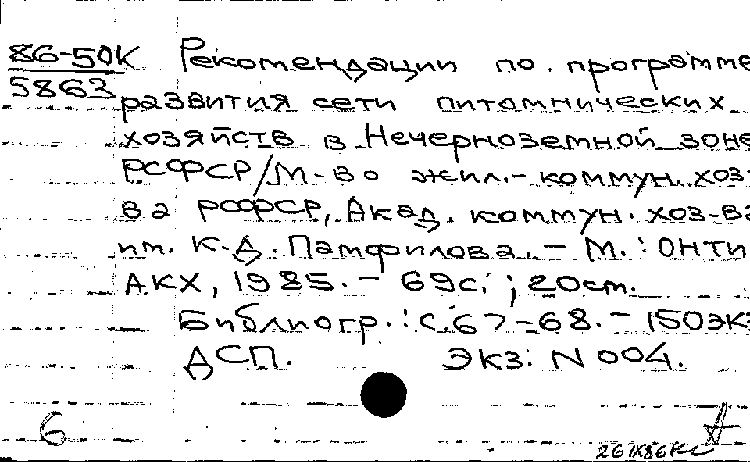 86-50К Рекомендации по программе
5863 развития сети питомнических
хозяйств в Нечерноземной зоне
РСФСР/М-во жил.-коммун. хоз-
ва РСФСР, Акад. коммун. хоз-ва
им. К.Д. Памфилова. - М.: ОНТИ
АКХ, 1985. - 69с.; 20см.
Библиогр.: с.67-68. - 150экз
ДСП. Экз. N 004.
6